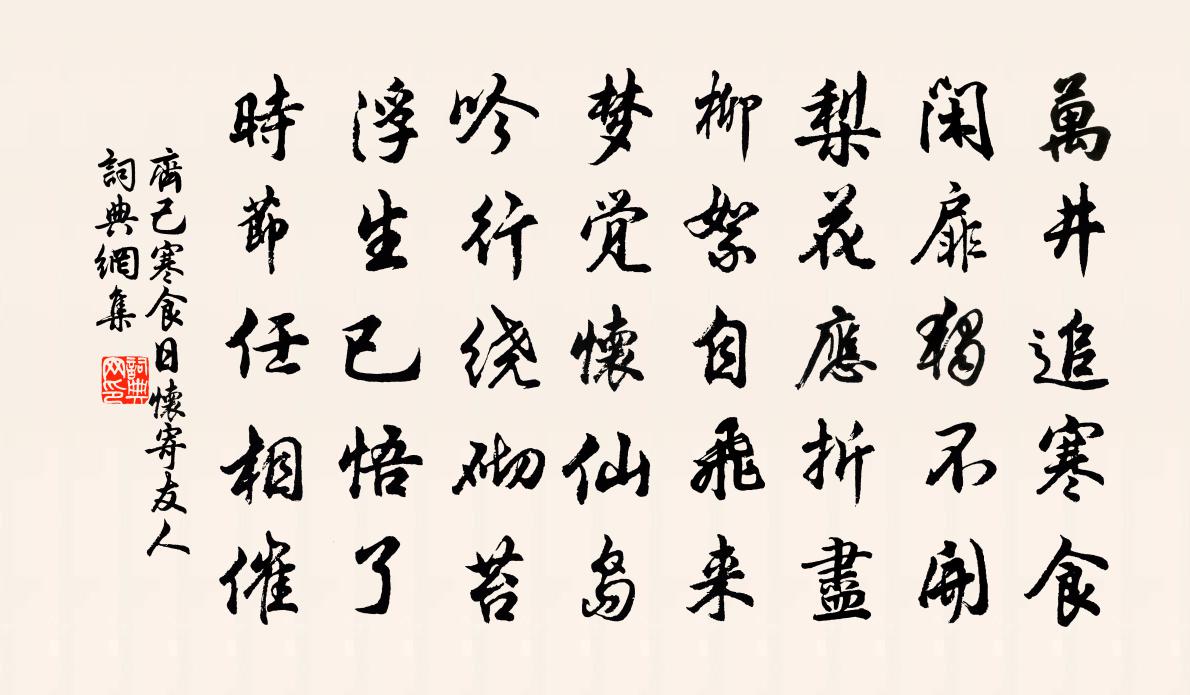 萬井追寒食
闲扉獨不開
梨花應折盡
柳絮自飛来
梦觉懷仙島
吟行绕砌苔
浮生已悟了
時節任相催
齊己寒食日懷寄友人
詞典網集
詞典网印